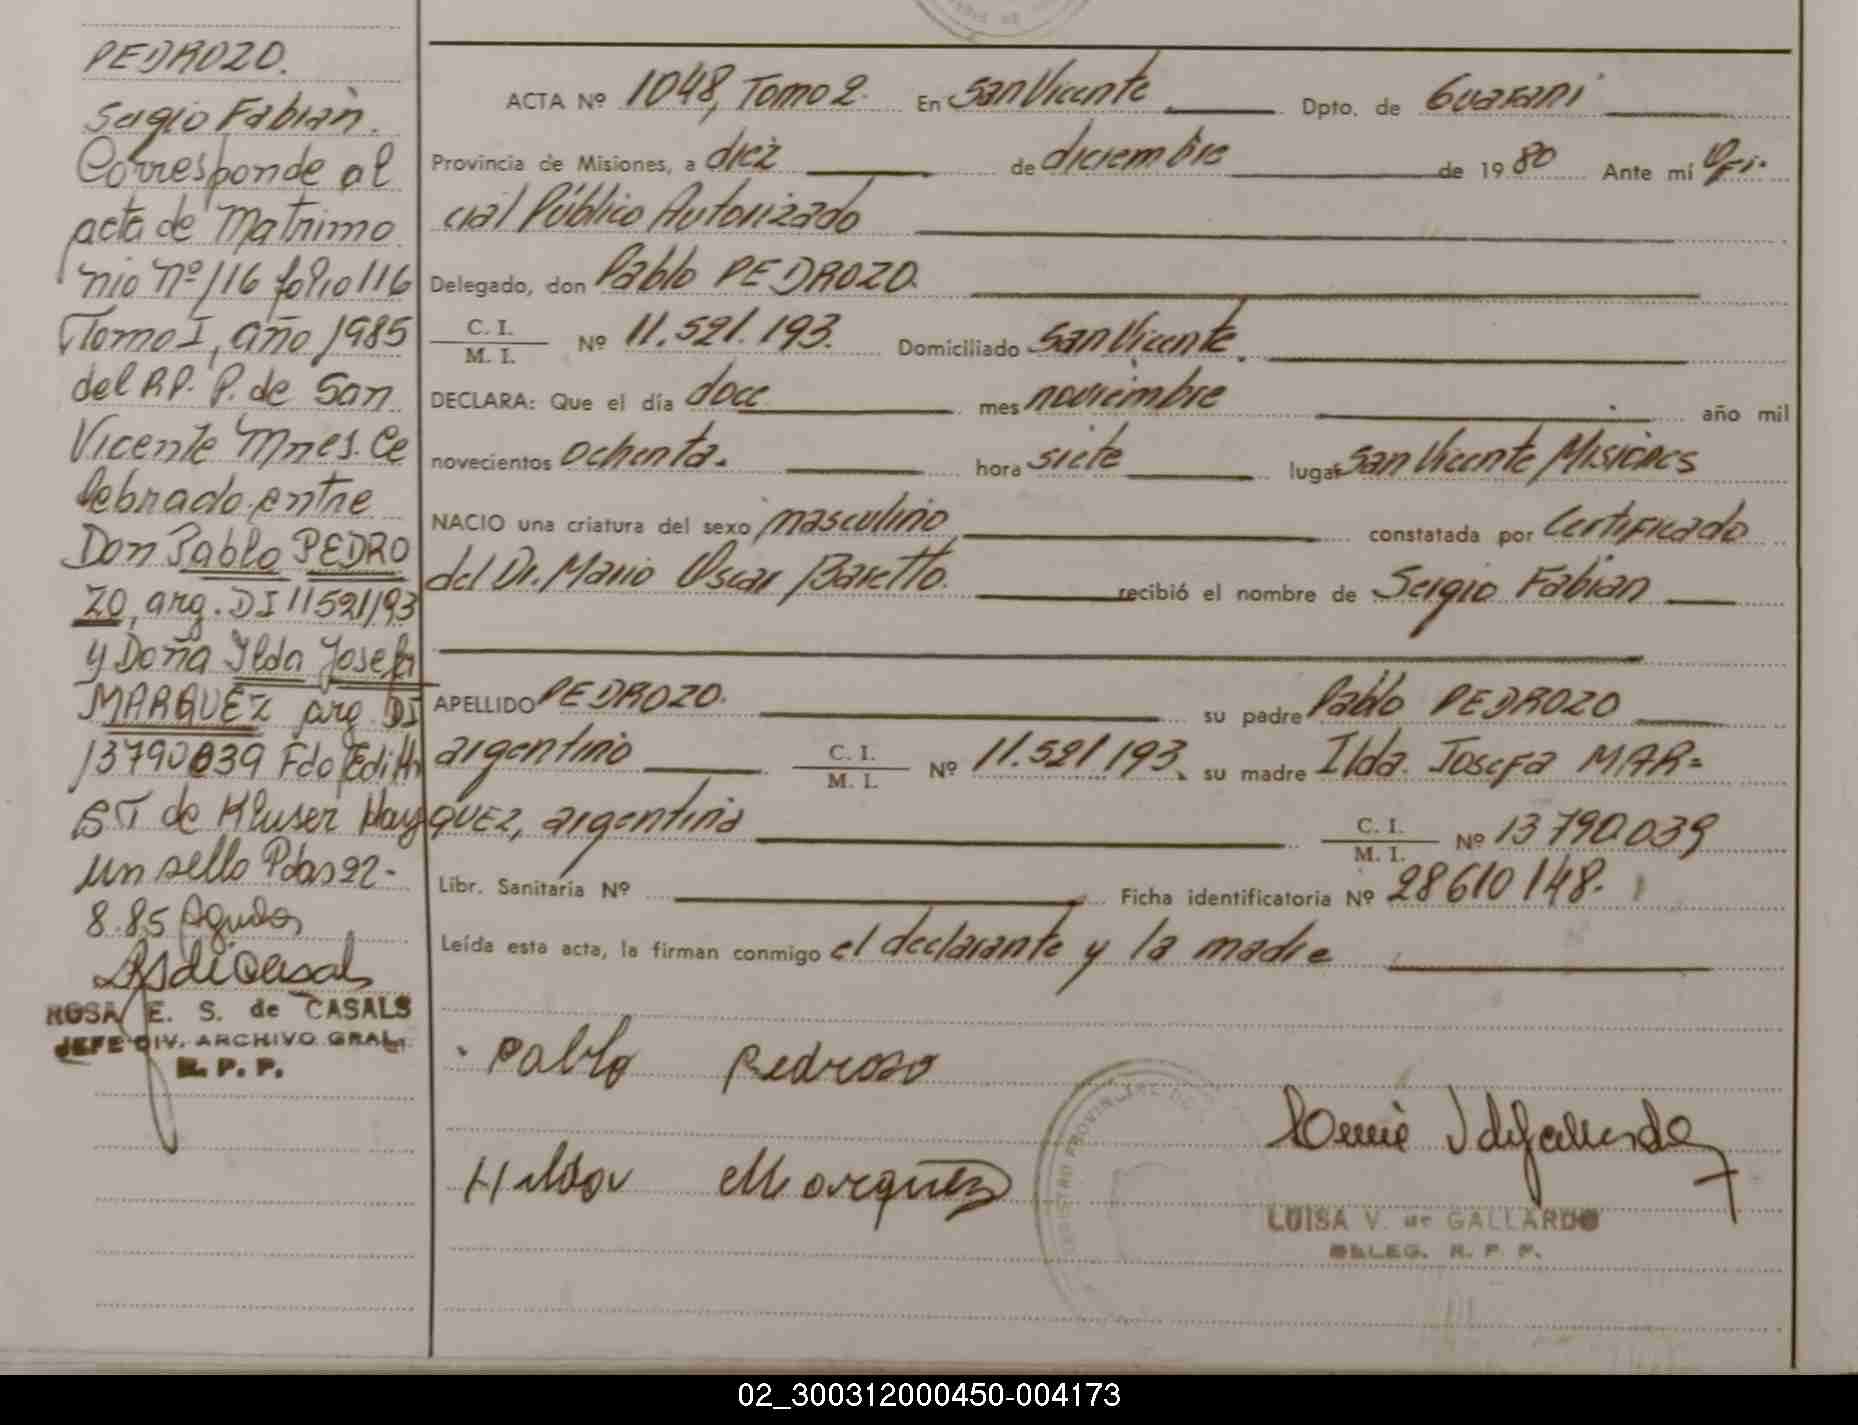 PEDROZO.
Sergio Fabián.
Corresponde al
acta de Matrimo
nio Nº 116 folio 116
Tomo I, año 1985
del R.P. P. de San
Vicente Mnes. Ce
lebrado entre
Don Pablo PEDRO
ZO, arg. DI 11521193
y Doña Ilda Josefa
MARQUEZ arg. DI
13790039 Fdo Edith
ST de Kluser Hay
un sello Pdas 22-
8.85
ROSA E. S. de CASALS
JEFE DIV. ARCHIVO GRAL.
R. P. P.
ACTA Nº 1048, Tomo 2. En San Vicente Dpto. de Guaraní
Provincia de Misiones, a diez de diciembre de 1980 Ante mí Ofi-
cial Público Autorizado
Delegado, don Pablo PEDROZO.
C. I.
M. I. Nº 11.521.193. Domiciliado San Vicente.
DECLARA: Que el día doce mes noviembre año mil
novecientos ochenta. hora siete lugar San Vicente Misiones
NACIO una criatura del sexo masculino, constatada por Certificado
del Dr. Mario Oscar Baretto. recibió el nombre de Sergio Fabián
APELLIDO PEDROZO. su padre Pablo PEDROZO
argentino C. I.
M. I. Nº 11.521.193. su madre Ilda Josefa MAR=
QUEZ, argentina C. I.
M. I. Nº 13790039
Libr. Sanitaria Nº Ficha identificatoria Nº 28610148.
Leída esta acta, la firman conmigo el declarante y la madre
Pablo Pedrozo
Hilda Marquez
REGISTRO PROVINCIAL DE
LUISA V. de GALLARDO
DELEG. R. P. P.
02_300312000450-004173